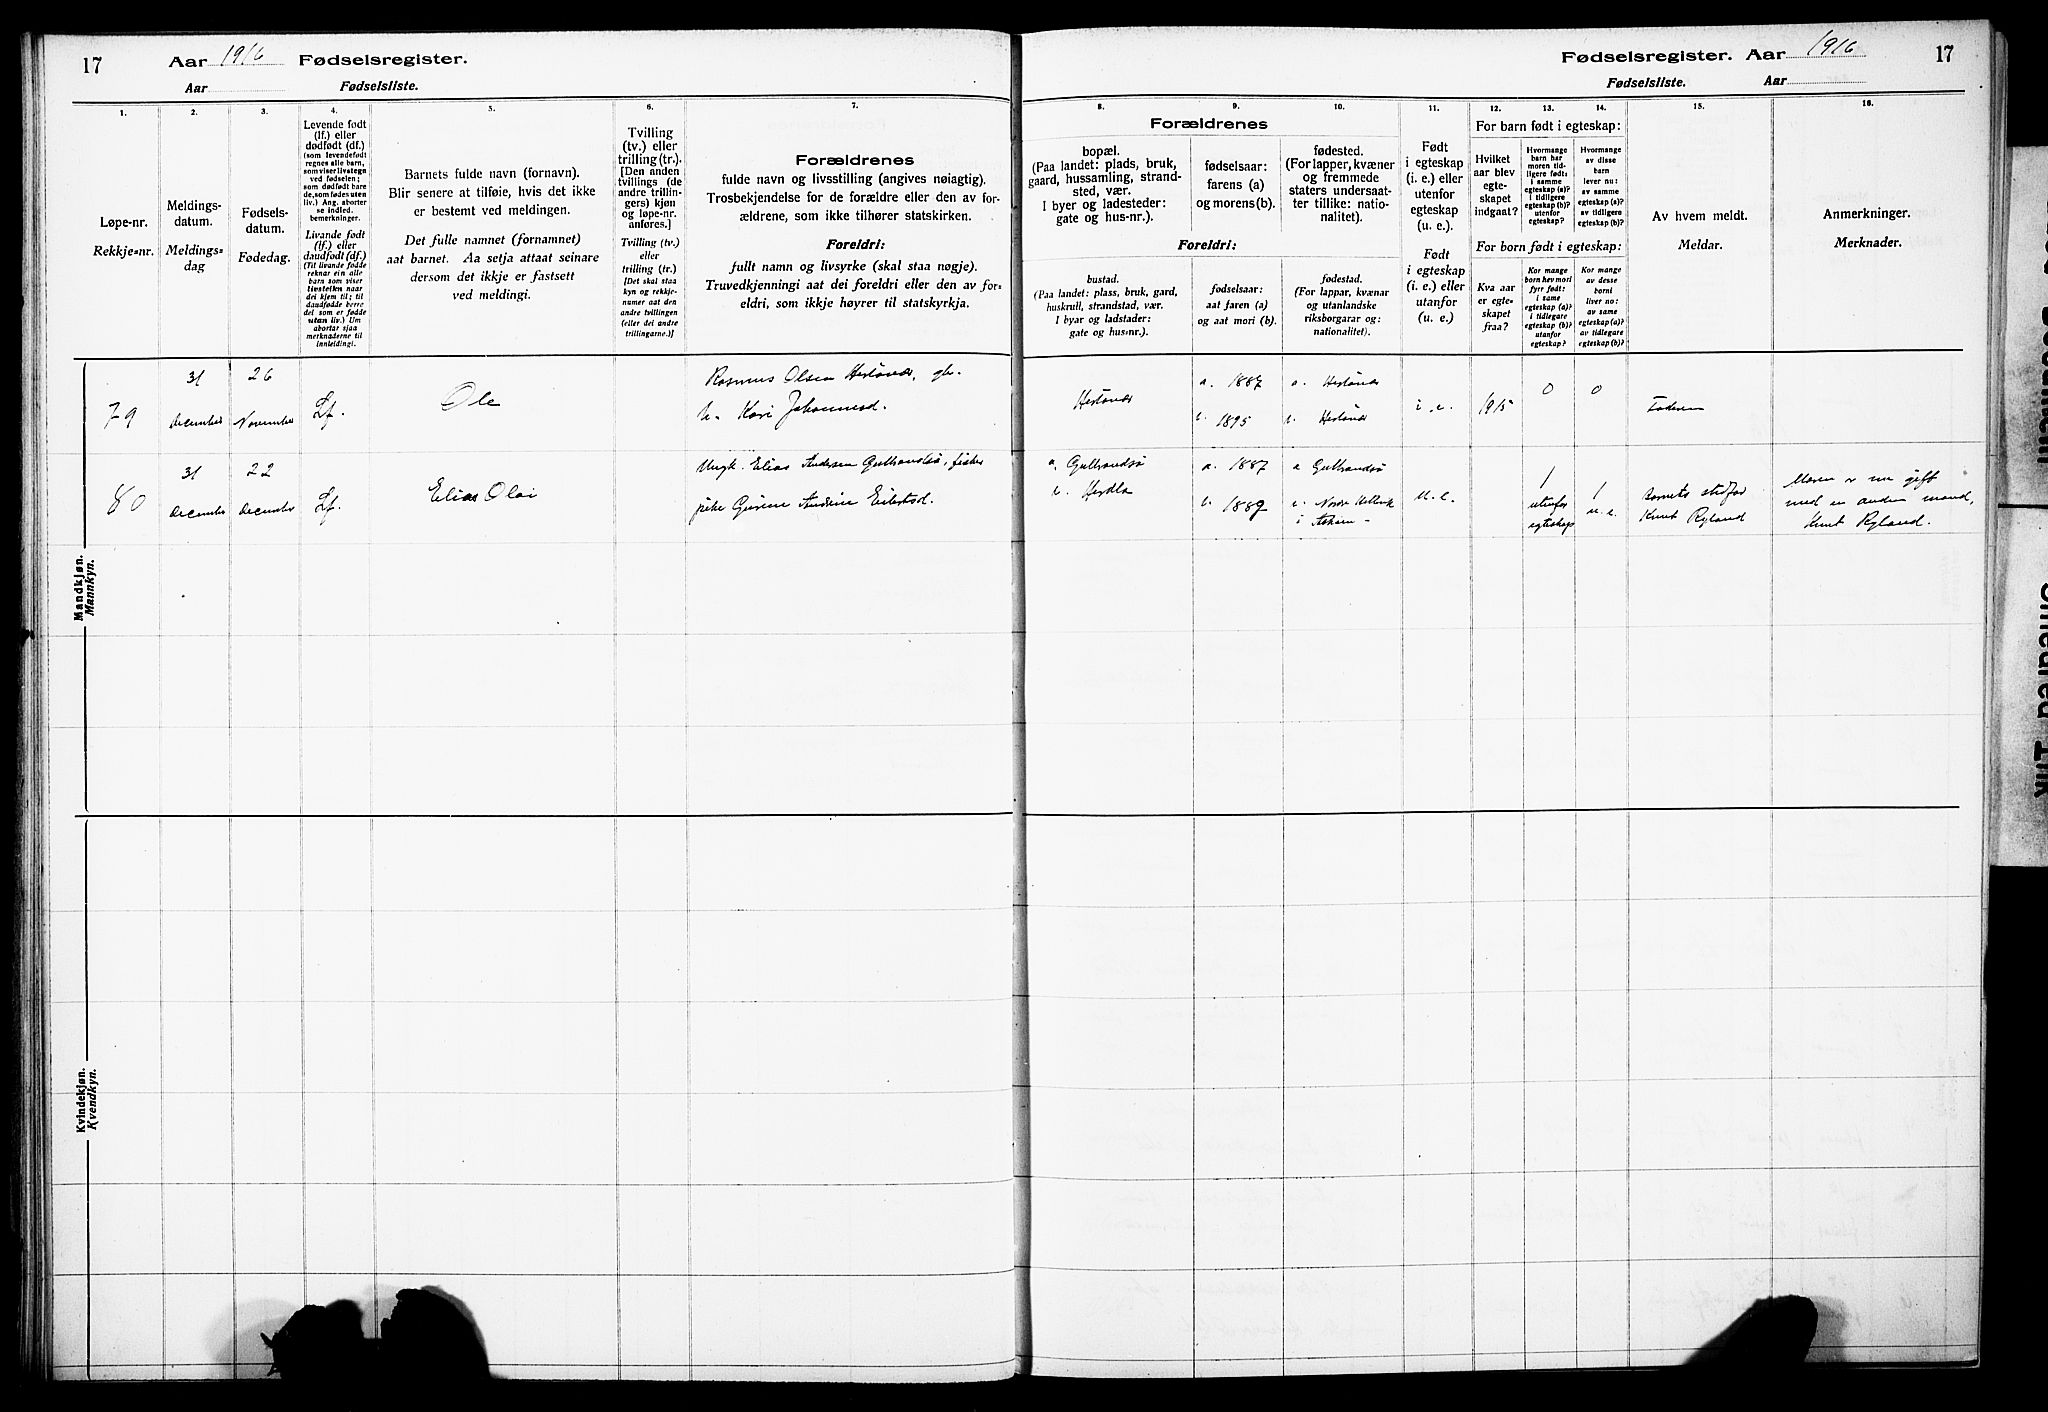 17
Aar 1916 Fødselsregister.
Aar Fødselsliste.
1.
2.
3.
4.
5.
6.
7.
Løpe-nr.
Rekkje=nr.
Meldings-
datum.
Meldings=
dag
Fødsels-
datum.
Fødedag.
Levende født
(lf.) eller
dødfødt (df.)
(som levendefødt
regnes alle barn,
som viser livstegn
ved fødselen;
som dødfødt bare
de, som fødes uten
liv.) Ang. aborter
se indled.
bemerkninger.
Livande født
(lf.) eller
daudfødt (df.)
(Til livande fødde
reknar ein alle
barn som viser
livsteikn naar
dei kjem til; til
daudfødde berre
dei som er fødde
utan liv.) Um
abortar sjaa
merknaderne til
innleidingi.
Barnets fulde navn (fornavn).
Blir senere at tilføie, hvis det ikke
er bestemt ved meldingen.
Det fulle namnet (fornamnet)
aat barnet. Aa setja attaat seinare
dersom det ikkje er fastsett
ved meldingi.
Tvilling
(tv.) eller
trilling (tr.).
[Den anden
tvillings (de
andre trillin-
gers) kjøn
og løpe-nr.
anføres.]
Tvilling (tv.)
eller
trilling (tr.)
[Det skal staa
kyn og rekkje-
numer aat den
andre tvillingen
(eller dei andre
trillingarne.)]
Forældrenes
fulde navn og livsstilling (angives nøiagtig).
Trosbekjendelse for de forældre eller den av for-
ældrene, som ikke tilhører statskirken.
Foreldri:
fullt namn og livsyrke (skal staa nøgje).
Truvedkjenningi aat dei foreldri eller den av for-
eldri, som ikkje høyrer til statskyrkja.
Mandkjøn.
Mannkyn.
79
31
december
26
November
Lf.
Ole
Rasmus Olsen Hestønes, gbr.
h. Kari Johannesd.
80
31
december
22
december
Lf.
Elias Olai
Ungk. Elias Andersen Gulbrandsø, fisker
pike Gurine Andrine Eilertsd.
Kvindekjøn.
Kvendkyn.
Fødselsregister. Aar 1916
17
Fødselsliste. Aar
8.
9.
10.
11.
12.
13.
14.
15.
16.
Forældrenes
bopæl.
(Paa landet: plads, bruk,
gaard, hussamling, strand-
sted, vær.
I byer og ladesteder:
gate og hus-nr.).
fødselsaar:
farens (a)
og morens (b).
fødested.
(For lapper, kvæner
og fremmede
staters undersaat-
ter tillike: natio-
nalitet).
Foreldri:
bustad.
(Paa landet: plass, bruk, gard,
huskrull, strandstad, vær.
I byar og ladstader:
gate og hus=nr.).
fødselsaar:
aat faren (a)
og aat mori (b).
fødestad.
(For lappar, kvænar
og utanlandske
riksborgarar og:
nationalitet).
Født
i egteskap
(i. e.) eller
utenfor
egteskap
(u. e.).
Født
i egteskap
(i. e.) eller
utanfor
(u. e.)
For barn født i egteskap:
Hvilket
aar blev
egte-
skapet
indgaat?
Hvormange
barn har
moren tid-
ligere født:
i samme
egteskap (a)?
i tidligere
egteskap (b)?
utenfor
egteskap?
Hvormange
av disse
barn
lever nu:
av samme
egteskap (a)?
av tidligere
egteskap (b)?
For born født i egteskap:
Kva aar
er egte=
skapet
fraa?
Kor mange
born hev mori
fyrr født:
i same
egteskap (a)?
i tidlegare
egteskap (b)?
utanfor
egteskap?
Kor mange
av desse
borni
liver no:
av same
egteskap (a)?
av tidlegare
egteskap (b)?
Av hvem meldt.
Meldar.
Anmerkninger.
Merknader.
a. 1887
b. 1895
i. e.
1915
0
0
Faderen
a. Gulbrandsø
b. Herdla
a. 1887
b. 1889
a Gulbrandsø
i Askøen
u. e.
1
utenfor
egteskap
1
u. e.
Barnets stedfar
Knut Ryland
Moren er nu gift
med en anden mand,
Knut Ryland.